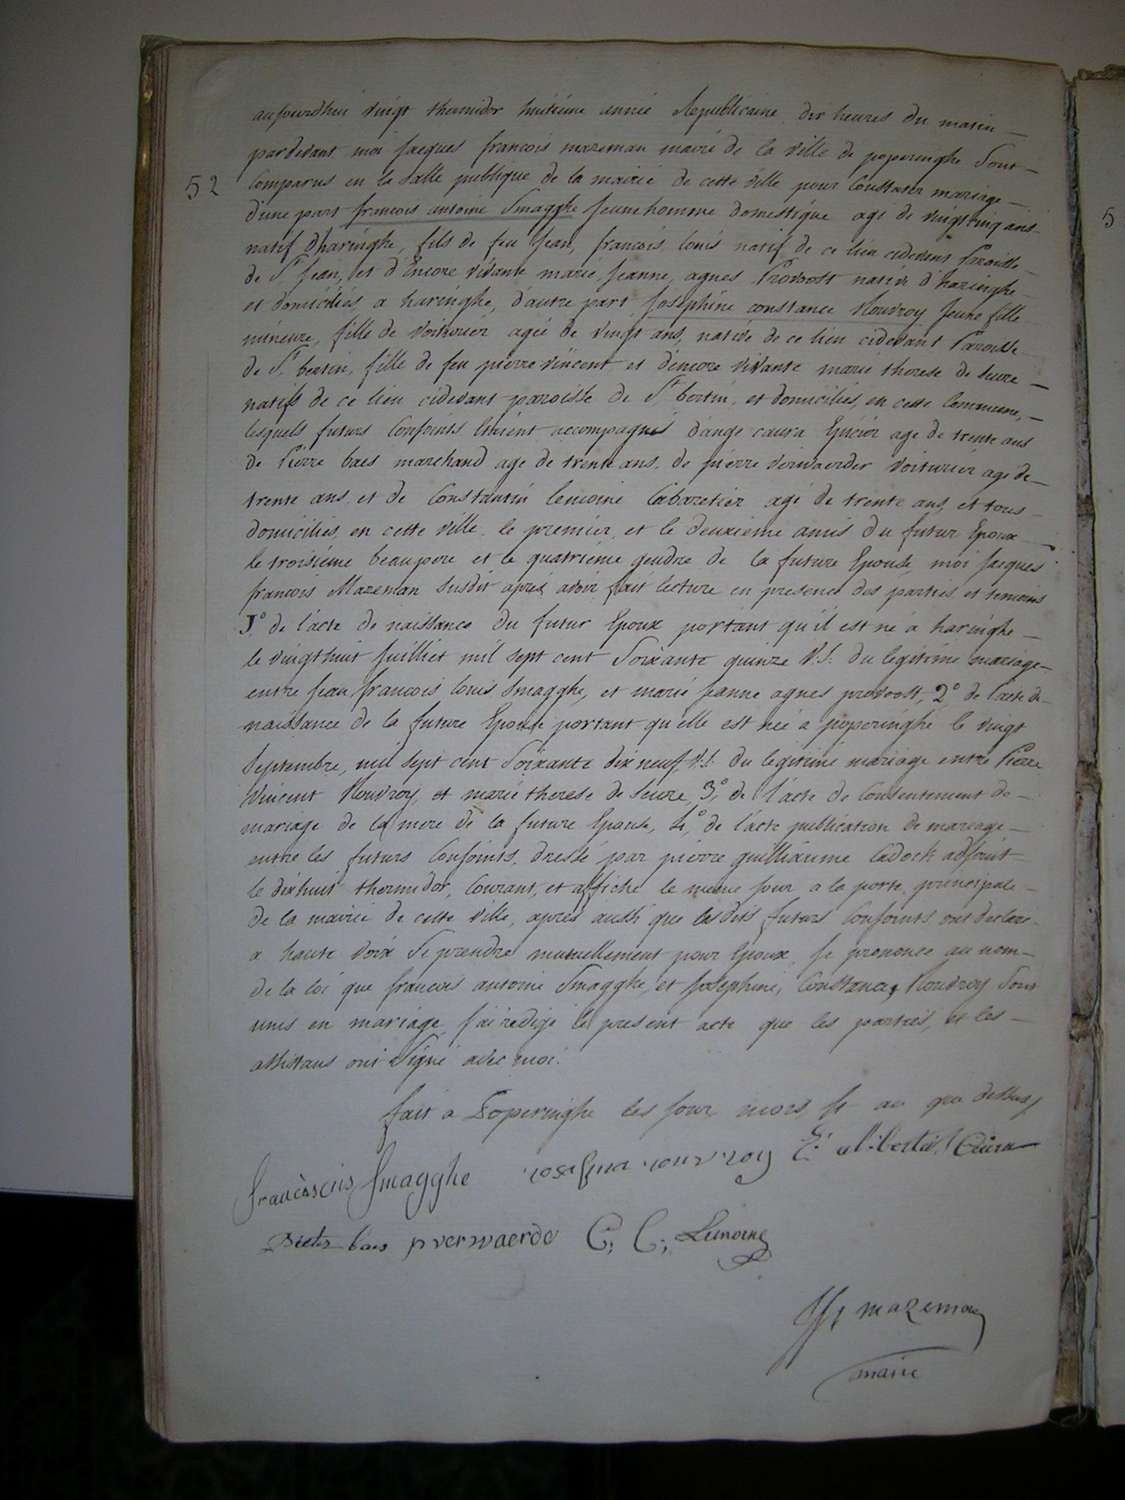 aujourdhui vingt thermidor huitieme année Republicaine dix heures du matin
pardevant moi jacques francois mazeman maire de la ville de poperinghe Sont
52
Comparus en la Salle publique de la mairie de cette ville pour Constater mariage
d'une part francois antoine Smagghe jeunehomme domestique agé de vingtcinq ans
natif dharinghe, fils de feu Jean, francois, louis natif de ce lieu cidevant Paroisse
de St Jean, et d'Encore vivante marie, jeanne, agnes Provoost native d'haringhe
et domiciliés a haringhe, d'autre part Josephine constance Rouvroy Jeune fille
mineure, fille de voiturier agée de vingt ans, native de ce lieu cidevant Paroisse
de St bertin, fille de feu pierre vincent et d'encore vivante marie therese de Seure
natifs de ce lieu cidevant paroisse de St bertin, et domiciliés en cette Commune,
lesquels futurs Conjoints étoient accompagnés dange caura Epicier age de trente ans
de Pierre baes marchand age de trente ans, de pierre verwaerder voiturier age de
trente ans, et de Constantin lemoine Cabaretier agé de trente ans, et tous
domiciliés, en cette ville, le premier, et le deuxieme amis du futur Epoux
le troisieme beaupere et le quatrieme gendre de la future Epouse, moi Jacques
francois Mazeman susdit après avoir fait lecture en presence des parties et temoins
1o de l'acte de naissance du futur Epoux portant qu'il est né a haringhe
le vingthuit juillet mil sept cent Soixante quinze V.S. du legitime mariage
entre jean francois louis Smagghe, et marie jeanne agnes provoost, 2o de l'acte de
naissance de la future Epouse portant qu'elle est née a poperinghe le vingt
Septembre, mil sept cent Soixante dix neuf V.S. du legitime mariage entre Pierre
Vincent Rouvroy, et marie therese de Seure, 3o, de l'acte de Consentement de
mariage de la mere de la future Epouse, 4o, de l'acte publication de mariage
entre les futurs Conjoints, dressé par pierre guilliaume Cadock adjoint
le dixhuit thermidor, Courant, et affiché le meme jour a la porte principale
de la mairie de cette ville, après aussi que lesdits futurs Conjoints ont declaré
a haute voix Se prendre mutuellement pour Epoux, je prononce au nom
de la loi que francois antoine Smagghe, et Josephine, Constance, Rouvroy Sont
unis en mariage, j'ai redigé le present acte que les parties, et les
assistans ont Signé avec moi.
fait a Poperinghe les jour, mois, et an que dessus
francèscus Smagghe rosefina rouvroy Caura
Pieter baes p verwaerde C; C; Lemoine
JF mazeman
maire